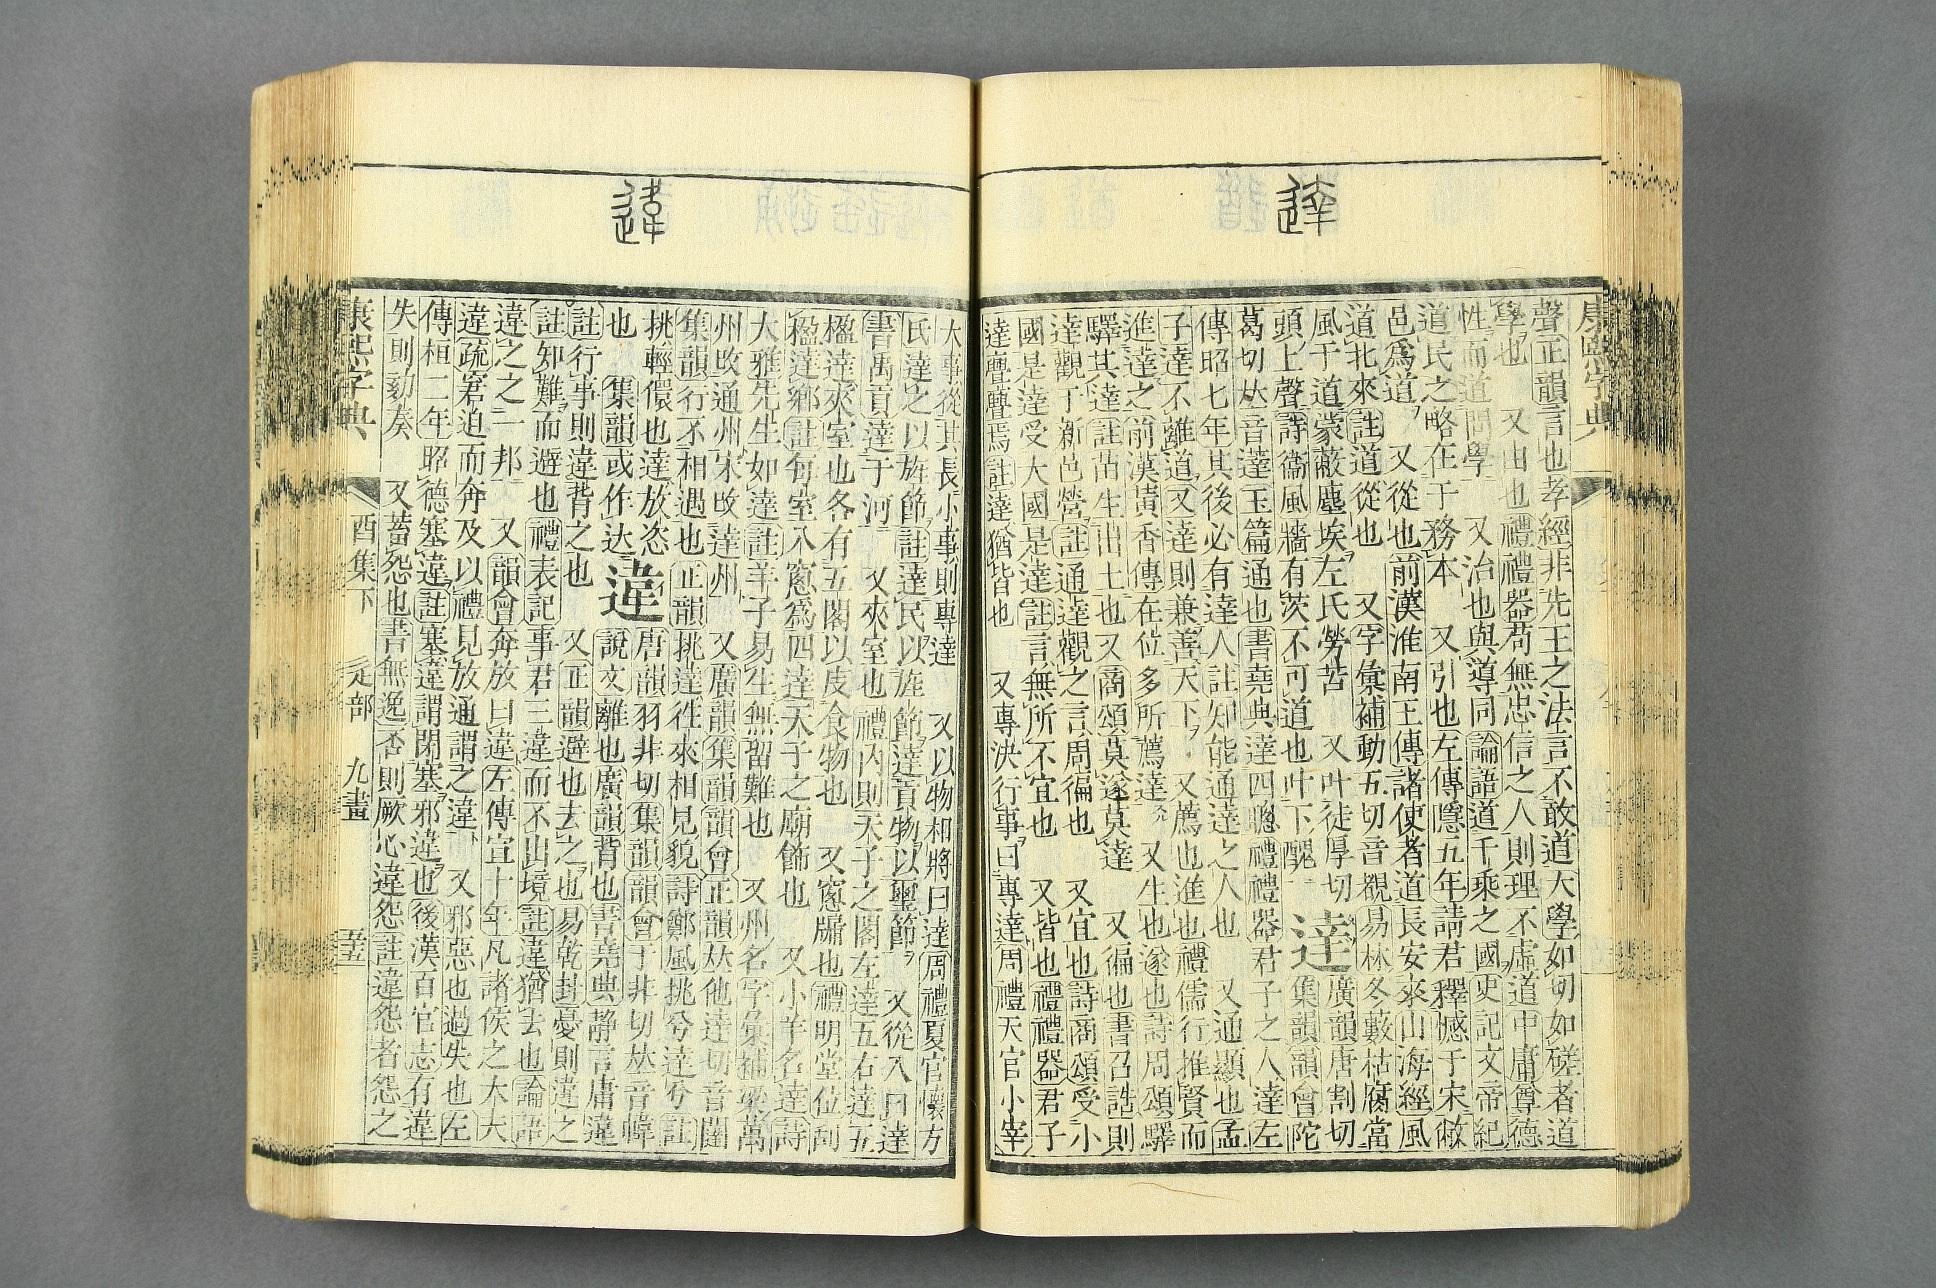 達
康熙字典
聲正韻言也孝經非先王之法言不敢道大學如切如磋者道
學也 又由也禮禮器苟無忠信之人則理不虛道中庸尊德
性而道問學 又治也與導同論語道千乘之國史記文帝紀
道民之略在于務本 又引也左傳隱五年請君釋憾于宋敝
邑爲道 又從也前漢淮南王傳諸使者道長安來山海經風
道北來註道從也 又字彙補動五切音覩易林冬藪枯腐當
風于道蒙蔽塵埃左氏勞苦 又叶徒厚切
頭上聲詩衞風牆有茨不可道也叶下醜
達
廣韻唐割切
集韻韻會陀
葛切𠀤音薘玉篇通也書堯典達四聰禮禮器君子之人達左
傳昭七年其後必有達人註知能通達之人也 又通顯也孟
子達不離道又達則兼善天下 又薦也進也禮儒行推賢而
進達之前漢黃香傳在位多所薦達 又生也遂也詩周頌驛
驛其達註苗生出土也又商頌莫遂莫達 又徧也書召誥則
達觀于新邑營註通達觀之言周徧也 又宜也詩商頌受小
國是達受大國是達註言無所不宜也 又皆也禮禮器君子
達亹亹焉註達猶皆也 又專決行事曰專達周禮天官小宰
違
大事從其長小事則專達 又以物相將曰達周禮夏官懷方
氏達之以旌節註達民以旌節達貢物以璽節 又從入曰達
書禹貢達于河 又夾室也禮內則天子之閣左達五右達五
楹達夾室也各有五閣以庋食物也 又窻牖也禮明堂位刮
楹達鄉註每室八窻爲四達天子之廟飾也 又小羊名達詩
大雅先生如達註羊子易生無留難也 又州名字彙補梁萬
州攺通州宋攺達州 又廣韻集韻韻會正韻𠀤他達切音闥
集韻行不相遇也正韻挑達往來相見貌詩鄭風挑兮達兮註
挑輕儇也達放恣
也 集韻或作达
違
唐韻羽非切集韻韻會于非切𠀤音幃
說文離也廣韻背也書堯典靜言庸違
註行事則違背之也 又正韻避也去之也易乾卦憂則違之
註知難而避也禮表記事君三違而不出境註違猶去也論語
違之之一邦 又韻會奔放曰違左傳宣十年凡諸侯之大夫
違疏窘迫而奔及以禮見放通謂之違 又邪惡也過失也左
傳桓二年昭德塞違註塞違謂閉塞邪違也後漢百官志有違
失則劾奏 又蓄怨也書無逸否則厥心違怨註違怨者怨之
康熙字典 酉集下 辵部 九畫